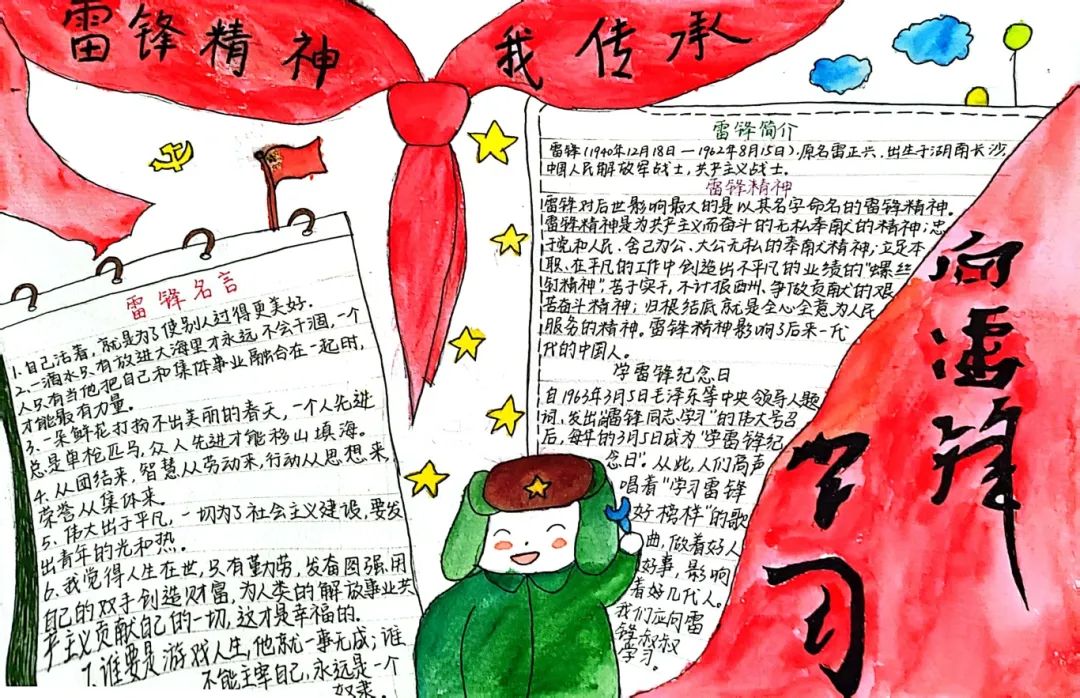 雷锋精神 我传承
雷锋名言
1.自己活着，就是为了使别人过得更美好.
2.一滴水只有放进大海里才永远不会干涸,一个
人只有当他把自己和集体事业融合在一起时,
才能最有力量。
3.一朵鲜花打扮不出美丽的春天，一个人先进
总是单枪匹马,众人先进才能移山填海。
4.从团结来,智慧从劳动来,行动从思想来,
荣誉从集体来.
5.伟大出于平凡，一切为了社会主义建设,要发
出青年的光和热。
6.我觉得人生在世,只有勤劳,发奋图强,用
自己的双手创造财富,为人类的解放事业共
产主义贡献自己的一切,这才是幸福的.
7.谁要是游戏人生,他就一事无成;谁
不能主宰自己,永远是一个
奴隶。
雷锋简介
雷锋(1940年12月18日—1962年8月15日),原名雷正兴,出生于湖南长沙,
中国人民解放军战士,共产主义战士.
雷锋精神
雷锋对后世影响最大的是以其名字命名的雷锋精神.
雷锋精神是为共产主义而奋斗的无私奉献的精神;忠
于党和人民、舍己为公、大公无私的奉献精神;立足本
职、在平凡的工作中创造出不平凡的业绩的"螺丝
钉精神".苦干实干,不计报酬、争做贡献的艰
苦奋斗精神;归根结底就是全心全意为人民
服务的精神.雷锋精神影响了后来一代
代的中国人。
学雷锋纪念日
自1963年3月5日毛泽东等中央领导人题
词,发出"雷锋同志学习"的伟大号召
后,每年的3月5日成为"学雷锋纪
念日".从此,人们高声
唱着"学习雷锋
好榜样"的歌
曲,做着好人
好事,影响
着好几代人.
我们应向雷
锋叔叔
学习。
向雷锋
学习